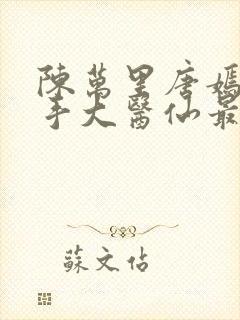 陳萬里唐嫣
手大醫仙最
蘇文佔